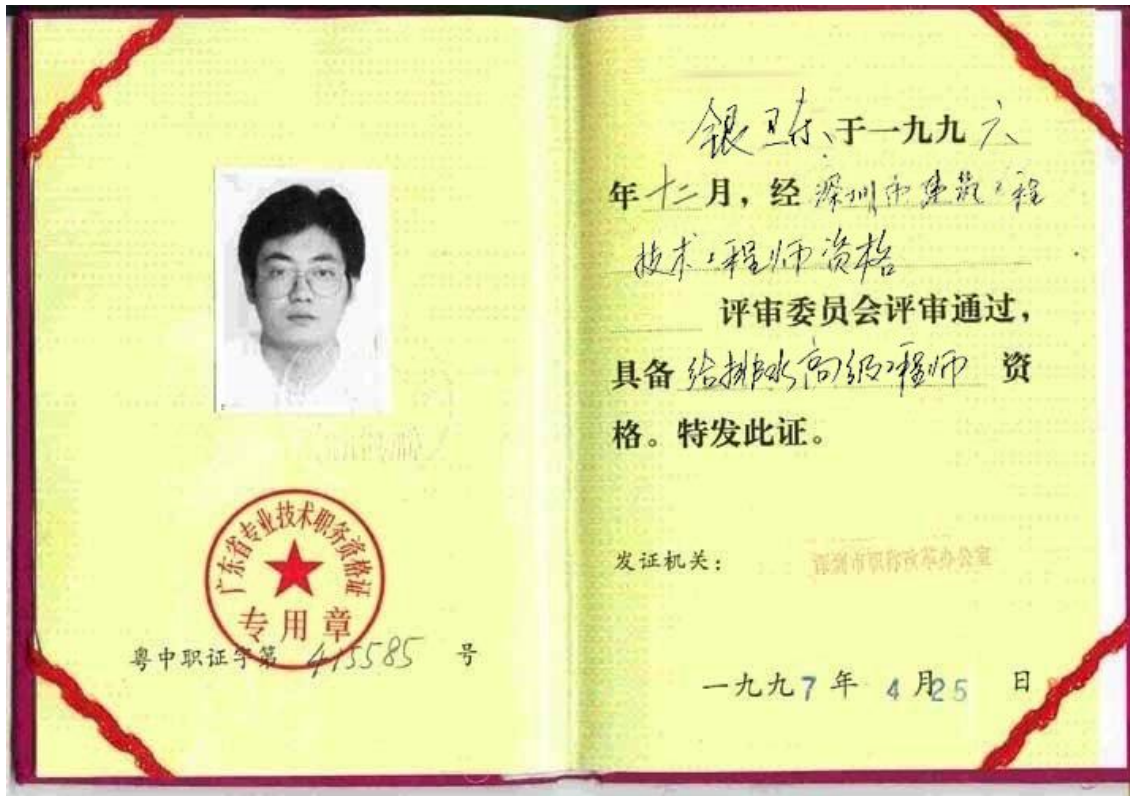 广东省专业技术职务资格证
专用章
粤中职证字第 415585 号
银卫东 于一九九六
年十二月，经 深圳市建筑工程
技术工程师资格
评审委员会评审通过，
具备 给排水高级工程师 资
格。特发此证。
发证机关：
一九九7年 4月25日